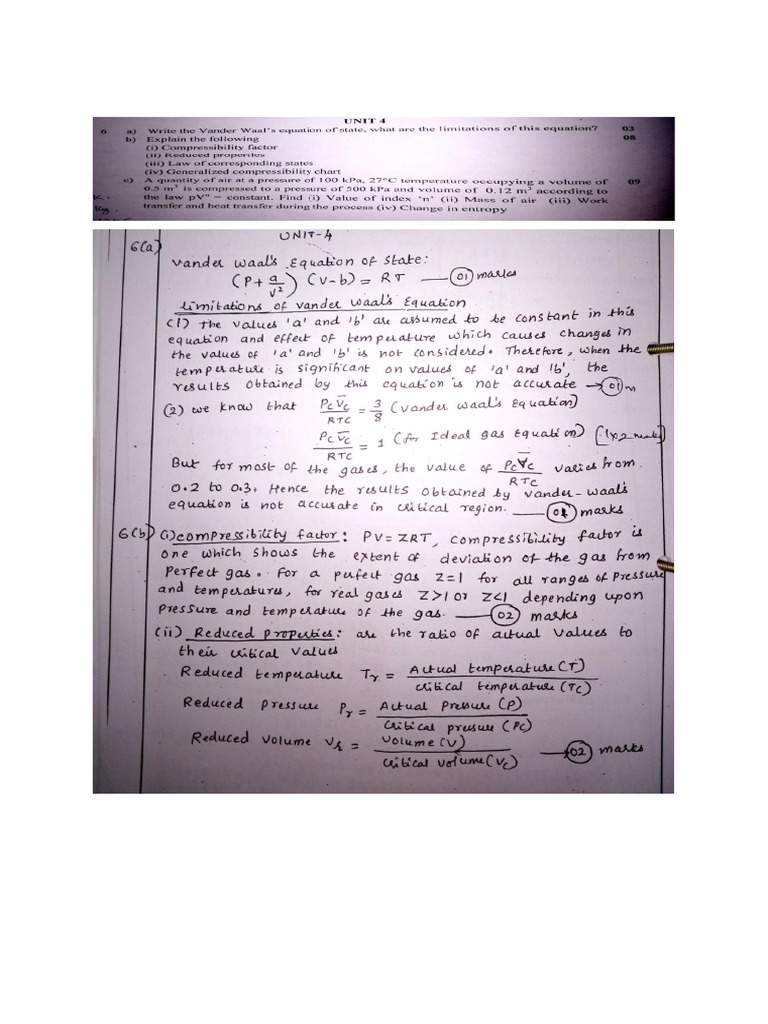 UNIT 4
6 a) Write the Vander Waal's equation of state, what are the limitations of this equation? 03
b) Explain the following 08
(i) Compressibility factor
(ii) Reduced properties
(iii) Law of corresponding states
(iv) Generalized compressibility chart
c) A quantity of air at a pressure of 100 kPa, 27°C temperature occupying a volume of 09
0.5 m³ is compressed to a pressure of 500 kPa and volume of 0.12 m³ according to
the law pVⁿ = constant. Find (i) Value of index 'n' (ii) Mass of air (iii) Work
transfer and heat transfer during the process (iv) Change in entropy
UNIT-4
6(a)
Vander Waal's Equation of state:
(P + a/V²) (V-b) = RT — 01 marks
Limitations of Vander Waal's Equation
(1) The values 'a' and 'b' are assumed to be constant in this
equation and effect of temperature which causes changes in
the values of 'a' and 'b' is not considered. Therefore, when the
temperature is significant on values of 'a' and 'b', the
results obtained by this equation is not accurate → 01 m
(2) we know that PcV̅c/RTc = 3/8 (Vander Waal's Equation)
PcV̅c/RTc = 1 (for Ideal gas Equation) (1x2 marks)
But for most of the gases, the value of PcV̅c/RTc varies from
0.2 to 0.3. Hence the results obtained by Vander-Waal's
equation is not accurate in critical region. — 01 marks
6(b) (i) compressibility factor: PV = ZRT, compressibility factor is
one which shows the extent of deviation of the gas from
perfect gas. For a perfect gas Z=1 for all ranges of pressure
and temperatures, for real gases Z>1 or Z<1 depending upon
pressure and temperature of the gas. — 02 marks
(ii) Reduced properties: are the ratio of actual values to
their critical values
Reduced temperature Tr = Actual temperature (T) / critical temperature (Tc)
Reduced pressure Pr = Actual Pressure (P) / critical pressure (Pc)
Reduced volume Vr = Volume (V) / critical volume (Vc) → 02 marks